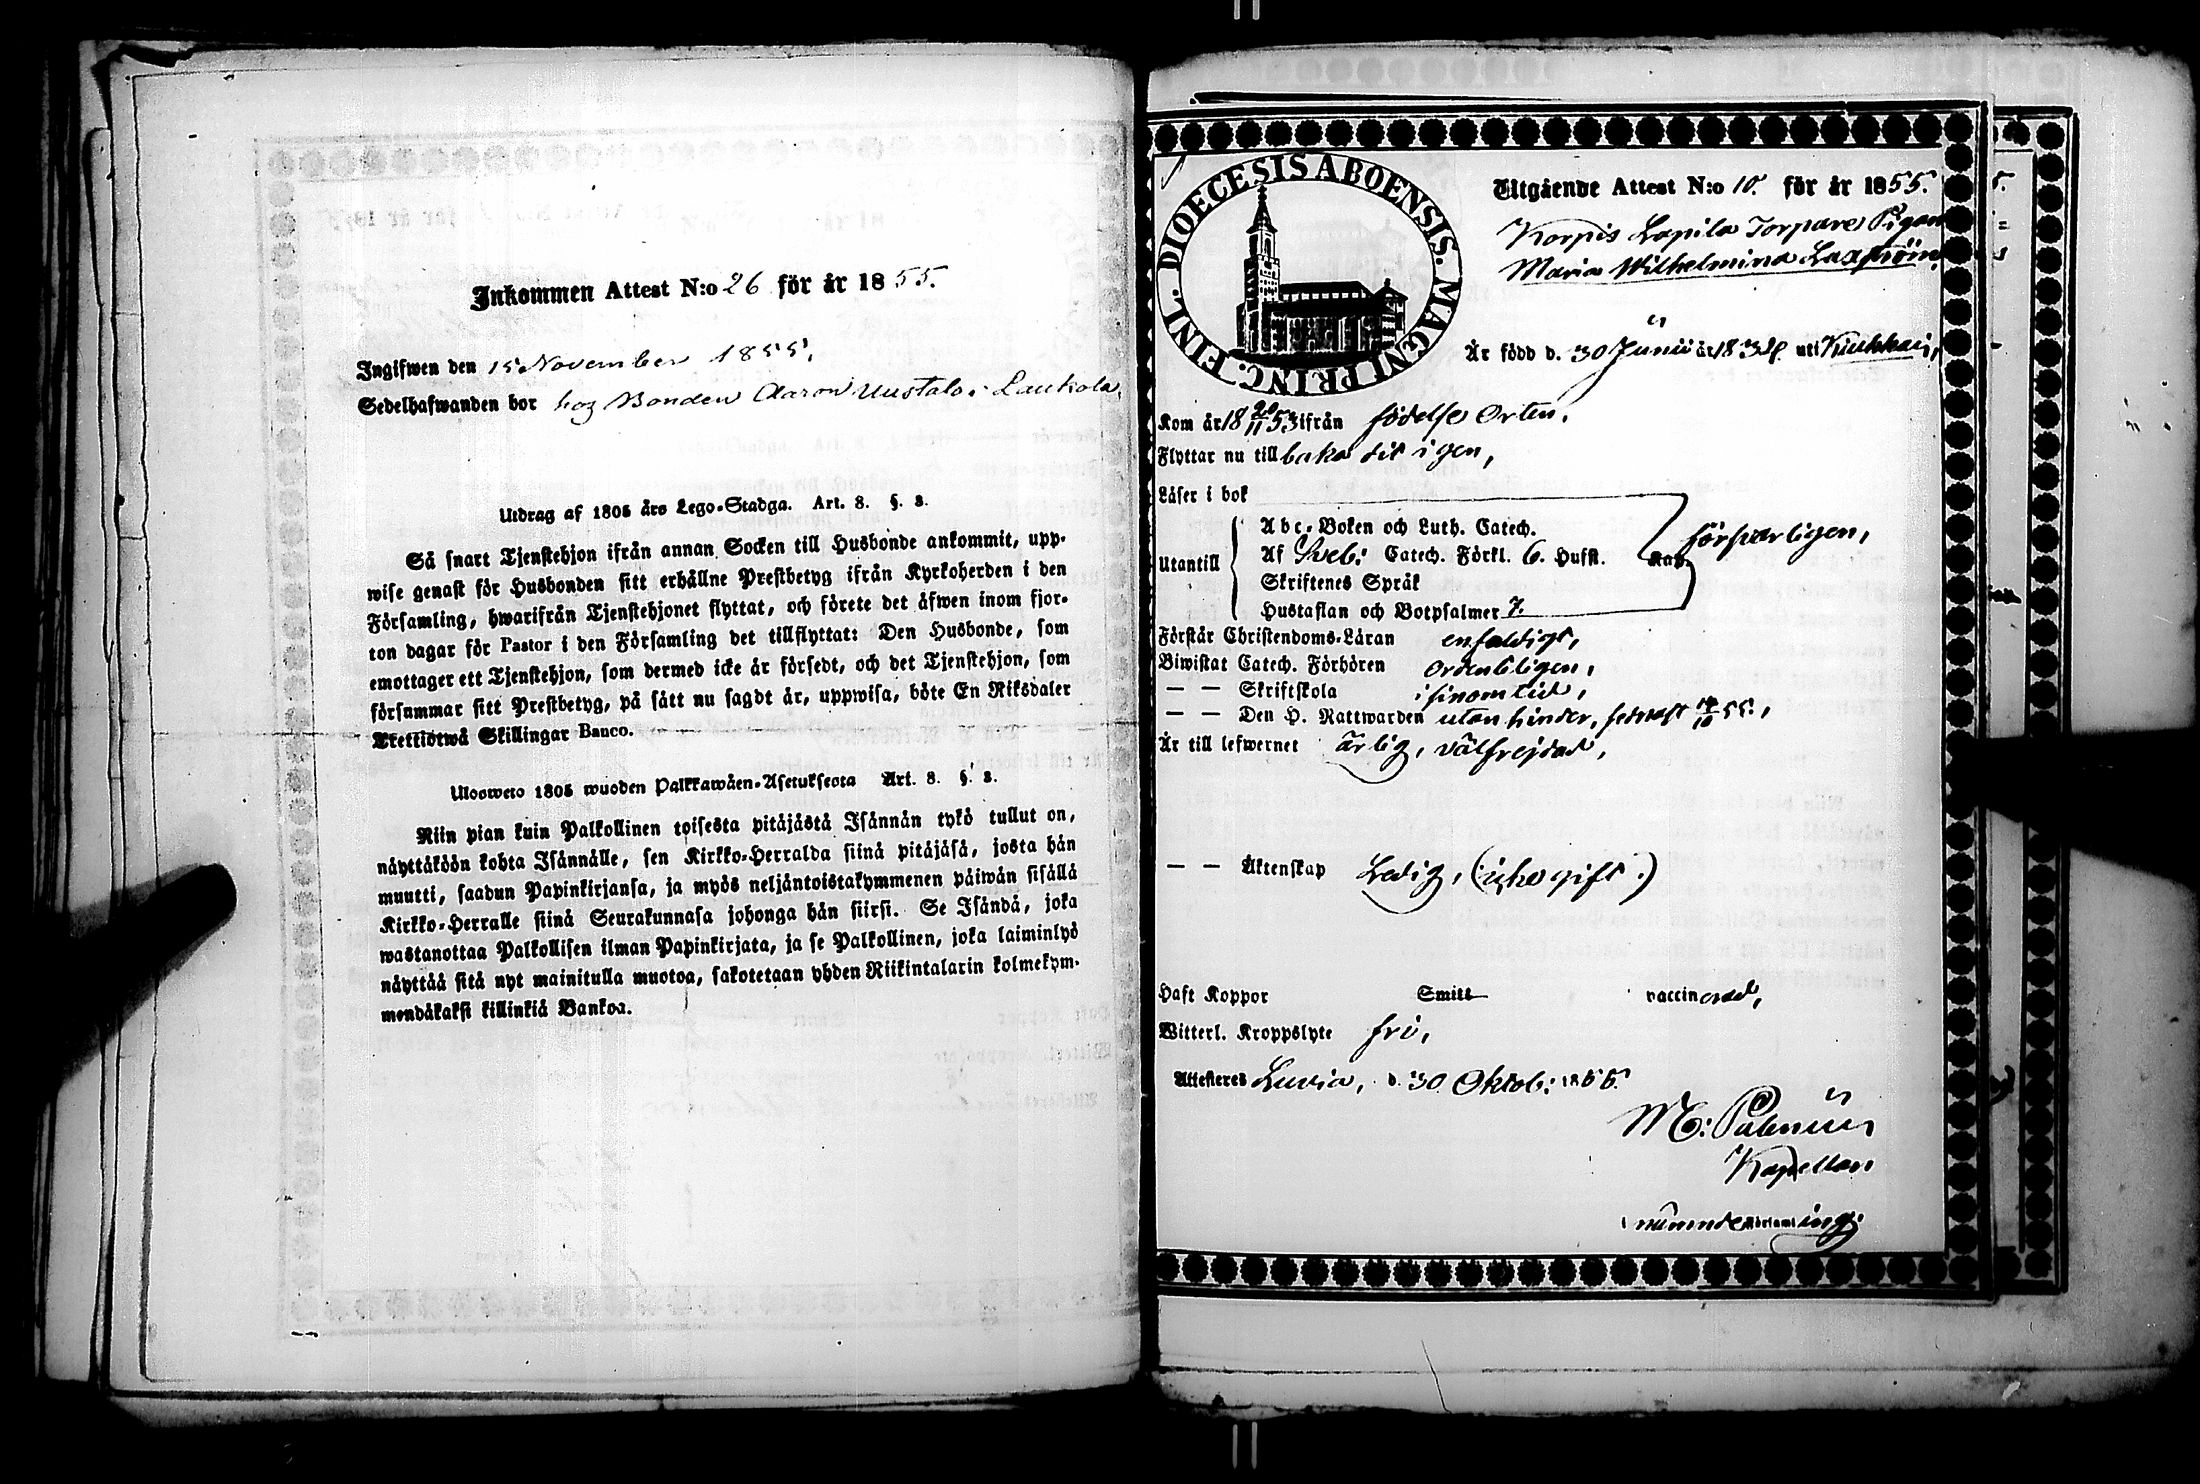 Inkommen Attest N:o 26 för år 1855.
Ingifwen den 15 November 1855.
Sedelhafwanden bor hoz Bonden Aaron Uustalo i Laukola.
Utdrag af 1805 års Lego-Stadga. Art. 8. §. 2.
Så snart Tjenstehjon ifrån annan Socken till Husbonde ankommit, upp-
wise genast för Husbonden sitt erhållne Prestbetyg ifrån Kyrkoherden i den
Församling, hwarifrån Tjenstehjonet flyttat, och förete det åfwen inom fjor-
ton dagar för Pastor i den Församling det tillflyttat: Den Husbonde, som
emottager ett Tjenstehjon, som dermed icke är försedt, och det Tjenstehjon, som
försummar sitt Prestbetyg, på sått nu sagdt är, uppwisa, böte En Riksdaler
Trettiotwå Skillingar Banco.
Uloswето 1805 wuoden Palkkawäen-Asetuksesta Art. 8. §. 2.
Niin pian kuin Palkollinen toisesta pitäjästä Isännän tykö tullut on,
näyttäköön kohta Isännälle, sen Kirkko-Herralda siinä pitäjäsä, josta hän
muutti, saadun Papinkirjansa, ja myös neljäntoistakymmenen päiwän sisällä
Kirkko-Herralle siinä Seurakunnasa johonga hän siirsi. Se Isändä, joka
wastanottaa Palkollisen ilman Papinkirjata, ja se Palkollinen, joka laiminlyö
näyttää sitä nyt mainitulla muotoa, sakotetaan yhden Riikintalarin kolmekym-
mendäkaksi killinkiä Bankoa.
DIOECESIS ABOENSIS. MAGNI PRINC. FINL.
Utgående Attest N:o 10. för år 1855.
Korpis Lapila Torpares Pigan
Maria Wilhelmina Laxström,
Är född d. 30 Junii år 1834 uti
Kom år 18 20/11 53 ifrån födelse Orten.
Flyttar nu tillbaka dit igen,
Läser i bok
Abc-Boken och Luth. Catech.
Utantill Af Sveb: Catech. Förkl. 6. Hufst. försvarligen,
Skriftenes Språk
Hustaflan och Botpsalmer 7.
Förstår Christendoms-Läran enfaldigt,
Biwistat Catech. Förhören ordenteligen,
— — Skriftskola i sinom tid,
— — Den H. Nattwarden utan hinder, sednast 14/10 55.,
Är till lefwernet ärlig, välfrejdad,
— — Äktenskap Ledig, (icke gift.)
Haft Koppor Smitt vaccinerad,
Witterl. Kroppslyte fri,
Attesteres Luvia, d. 30 Oktob: 1855.
Kapellan